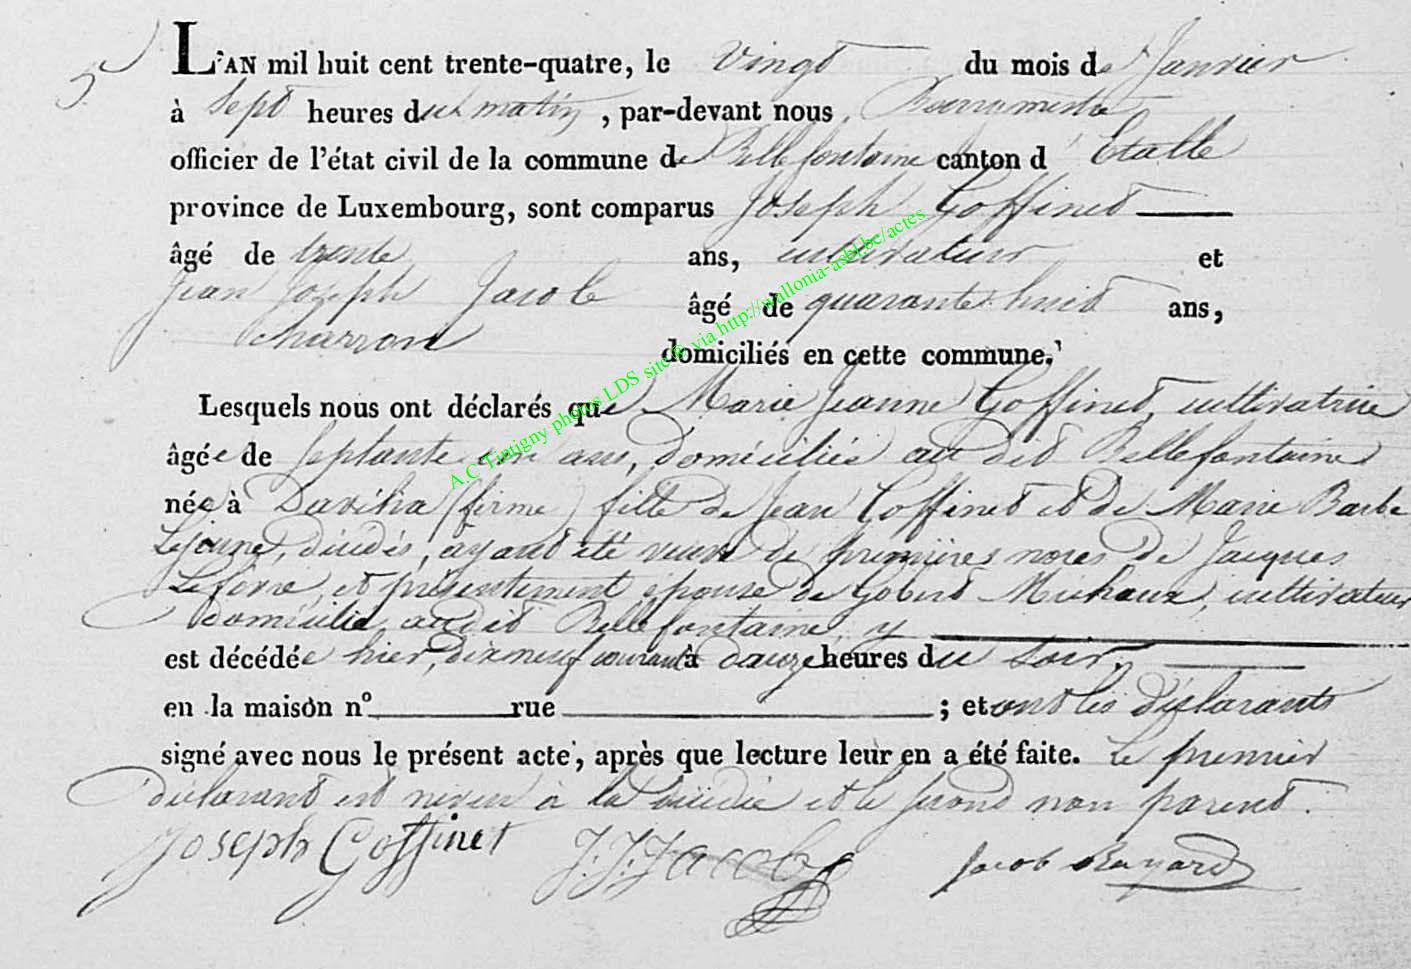 5
L'AN mil huit cent trente-quatre, le vingt du mois de Janvier
à Sept heures du matin, par-devant nous Bourgmestre
officier de l'état civil de la commune de Bellefontaine canton d'Etalle
province de Luxembourg, sont comparus Joseph Goffinet
âgé de trente ans, cultivateur et
Jean Joseph Jacob âgé de quarante huit ans,
charron domiciliés en cette commune.
Lesquels nous ont déclarés que Marie Jeanne Goffinet, cultivatrice
âgée de Septante ans, domiciliée au dit Bellefontaine
née à (ferme) fille de Jean Goffinet et de Marie Barbe
Lejeune, décédés, ayant été veuve de premières noces de Jacques
Lefèvre, et présentement épouse de Gobert Michaux, cultivateur
domicilié audit Bellefontaine, y
est décédée hier, dixneuf courant à douze heures du soir,
en la maison n° rue ; et ont les déclarants
signé avec nous le présent acte, après que lecture leur en a été faite. Le premier
déclarant est neveu à la décédée et le second non parent.
Joseph Goffinet J. J. Jacob Jacob
A.C Tintigny photos LDS site© via http://wallonia-asbl.be/actes